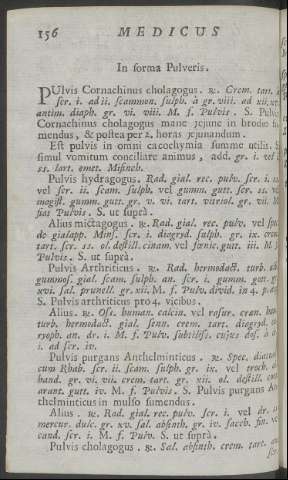 156 MEDICUS
In forma Pulveris.
PUlvis Cornachinus cholagogus. ℞. Crem. tart.
scr. i. ad ii. scammon. sulph. à gr. viii. ad xii.
antim. diaph. gr. vi. viii. M. f. Pulvis. S. Pulvis
Cornachinus cholagogus mane jejune in brodio su-
mendus, & postea per 2. horas jejunandum.
Est pulvis in omni cacochymia summe utilis. S
simul vomitum conciliare animus, add. gr. i. vel
ss. tart. emet. Misneh.
Pulvis hydragogus. Rad. gial. rec. pulv. scr. i. ss.
vel scr. ii. scam. sulph. vel gumm. gutt. scr. ss. vel
magist. gumm. gutt. gr. v. vi. tart. vitriol. gr. vii. M
fias Pulvis. S. ut suprà.
Alius mictagogus. ℞. Rad. gial. rec. pulv. vel spec.
de gialapp. Mens. scr. i. diagryd. sulph. gr. ix. crem.
tart. scr. ss. ol. destill. cinam. vel fœnic. gutt. iii. M. f.
Pulvis. S. ut suprà.
Pulvis Arthriticus. ℞. Rad. hermodact. turb. ads
gummos. gial. scam. sulph. an. scr. i. gumm. gott. gr.
xvi. sal. prunell. gr. xii. M. f. Pulv. divid. in 4. p. æq.
S. Pulvis arthriticus pro 4. vicibus.
Alius. ℞. Oss. human. calcin. vel rasur. cran. hum.
turb. hermodact. gial. senn. crem. tart. diegryd.
ryoph. an. dr. i. M. f. Pulv. subtiliss. cujus dos. à
i. ad scr. iv.
Pulvis purgans Anthelminticus. ℞. Spec. diaturb.
cum Rhab. scr. ii. scam. sulph. gr. ix. vel troch.
hand. gr. vi. vii. crem. tart. gr. xii. ol. destill.
arant. gutt. iv. M. f. Pulvis. S. Pulvis purgans An-
thelminticus in mulso sumendus.
Alius. ℞. Rad. gial. rec. pulv. scr. i. vel dr. ss.
mercur. dulc. gr. xv. sal. absinth. gr. iv. sacch. fin. vel
cand. scr. i. M. f. Pulv. S. ut suprà.
Pulvis cholagogus. ℞. Sal. absinth. crem. tart.
scr.